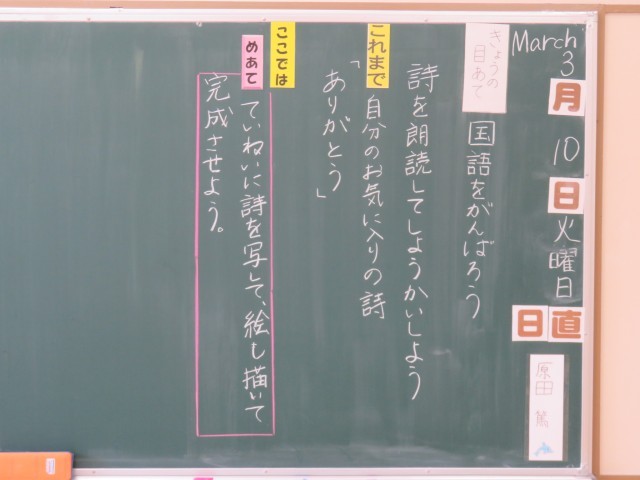 March
3
月
10
日
火曜日
日直
原田 篤
きょうの
目あて
国語をがんばろう
詩を朗読してしょうかいしよう
これまで
自分のお気に入りの詩
「ありがとう」
ここでは
めあて
ていねいに詩を写して、絵も描いて
完成させよう。